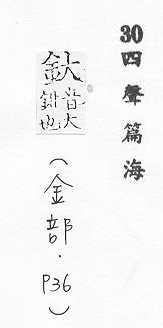 30四聲篇海
釱音大
鉗也
(金部.P36)